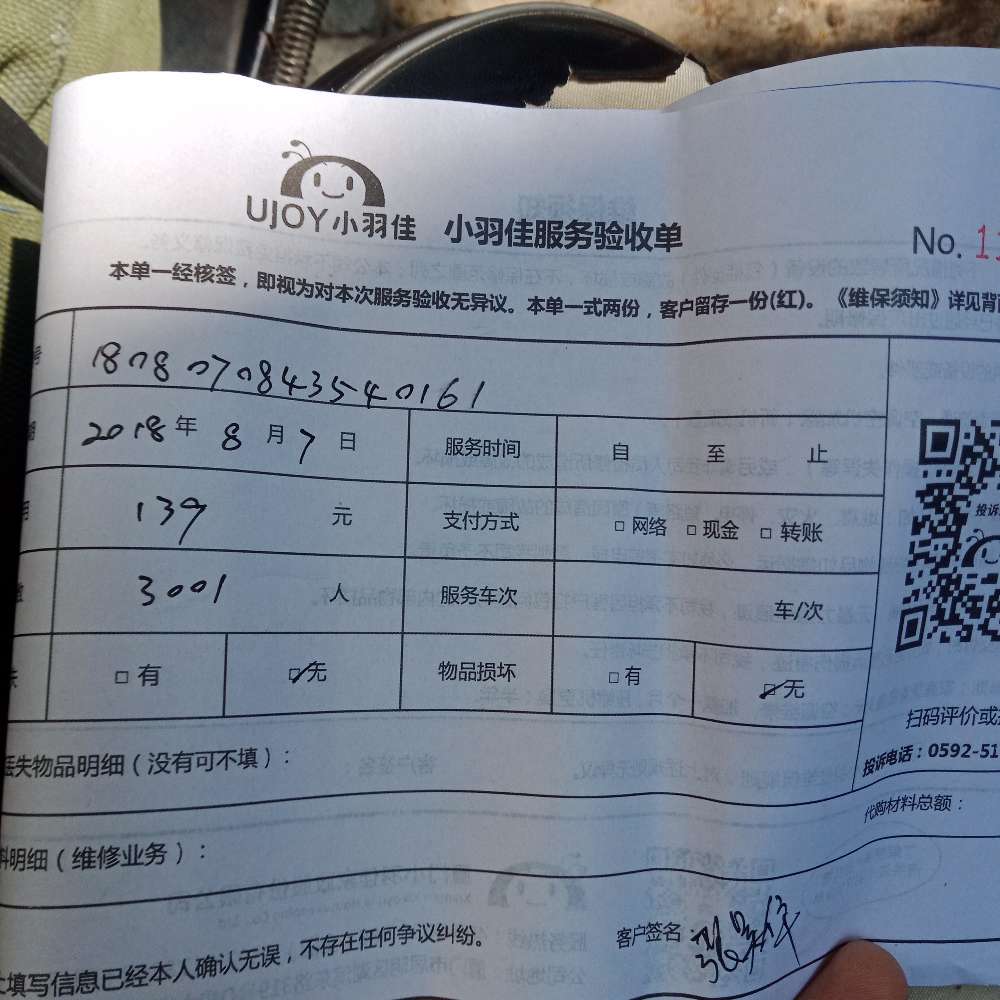 UJOY小羽佳 小羽佳服务验收单 No. 1
本单一经核签，即视为对本次服务验收无异议。本单一式两份，客户留存一份(红)。《维保须知》详见背
号 1808070843540161
2018年 8月 7日 服务时间 自 至 止
139 元 支付方式 □网络 □现金 □转账
3001 人 服务车次 车/次
□有 ☑无 物品损坏 □有 ☑无
投诉
扫码评价或
投诉电话：0592-51
丢失物品明细（没有可不填）：
代购材料总额：
料明细（维修业务）：
客户签名：
填写信息已经本人确认无误，不存在任何争议纠纷。